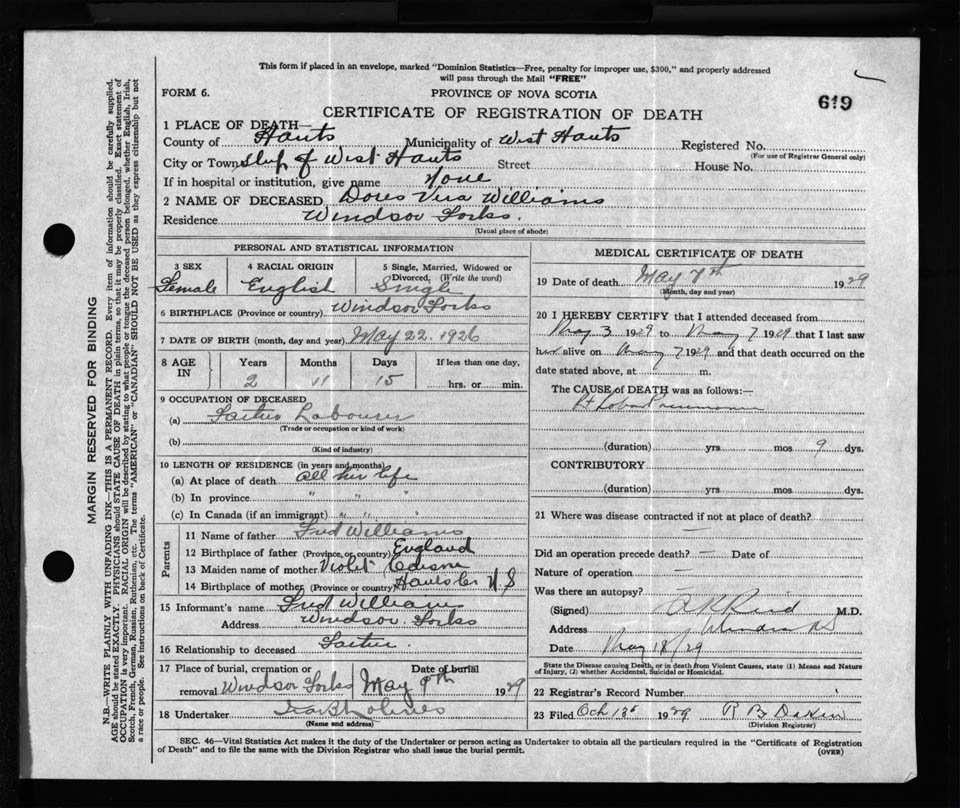 This form if placed in an envelope, marked "Dominion Statistics—Free, penalty for improper use, $300," and properly addressed
will pass through the Mail "FREE"
FORM 6.
PROVINCE OF NOVA SCOTIA
619
CERTIFICATE OF REGISTRATION OF DEATH
1 PLACE OF DEATH—
County of Hants Municipality of West Hants Registered No.
(For use of Registrar General only)
City or Town of West Hants Street House No.
If in hospital or institution, give name None
2 NAME OF DECEASED Williams
Residence Windsor Forks.
(Usual place of abode)
PERSONAL AND STATISTICAL INFORMATION
3 SEX 4 RACIAL ORIGIN 5 Single, Married, Widowed or Divorced. (Write the word)
Female English Single
6 BIRTHPLACE (Province or country) Windsor Forks
7 DATE OF BIRTH (month, day and year) May 22, 1926
8 AGE IN Years Months Days If less than one day,
2 11 15 hrs. or min.
9 OCCUPATION OF DECEASED
(a) Labourer
(Trade or occupation or kind of work)
(b)
(Kind of industry)
10 LENGTH OF RESIDENCE (in years and months)
(a) At place of death all her life
(b) In province " " "
(c) In Canada (if an immigrant) " " "
Parents
11 Name of father Fred Williams
12 Birthplace of father (Province or country) England
13 Maiden name of mother Violet
14 Birthplace of mother (Province or country) N.S
15 Informant's name Fred Williams
Address Windsor Forks
16 Relationship to deceased
17 Place of burial, cremation or removal Windsor Forks
Date of burial May 9th 1929
18 Undertaker
(Name and address)
MEDICAL CERTIFICATE OF DEATH
19 Date of death May 7th 1929
(Month, day and year)
20 I HEREBY CERTIFY that I attended deceased from
May 3 1929 to May 7 1929 that I last saw
her alive on May 7 1929 and that death occurred on the
date stated above, at m.
The CAUSE of DEATH was as follows:—
Rt Lobar Pneumonia
(duration) yrs mos 9 dys.
CONTRIBUTORY
(duration) yrs mos dys.
21 Where was disease contracted if not at place of death?
—
Did an operation precede death? — Date of
Nature of operation —
Was there an autopsy?
(Signed) A K Reid M.D.
Address Windsor NS
Date May 18/29
State the Disease causing Death, or in death from Violent Causes, state (1) Means and Nature
of Injury, (2) whether Accidental, Suicidal or Homicidal.
22 Registrar's Record Number
23 Filed Oct 1929
(Division Registrar)
SEC. 46—Vital Statistics Act makes it the duty of the Undertaker or person acting as Undertaker to obtain all the particulars required in the "Certificate of Registration
of Death" and to file the same with the Division Registrar who shall issue the burial permit. (OVER)
MARGIN RESERVED FOR BINDING
N.B.—WRITE PLAINLY WITH UNFADING INK—THIS IS A PERMANENT RECORD. Every item of information should be carefully supplied.
AGE should be stated EXACTLY. PHYSICIANS should STATE CAUSE OF DEATH in plain terms, so that it may be properly classified. Exact statement of
OCCUPATION is very important. RACIAL ORIGIN will be described by stating to what people or tongue the deceased person belonged, whether English, Irish,
Scotch, French, German, Russian, Ruthenian, etc. The terms "AMERICAN" or "CANADIAN" SHOULD NOT BE USED as they express citizenship but not
a race or people. See instructions on back of Certificate.